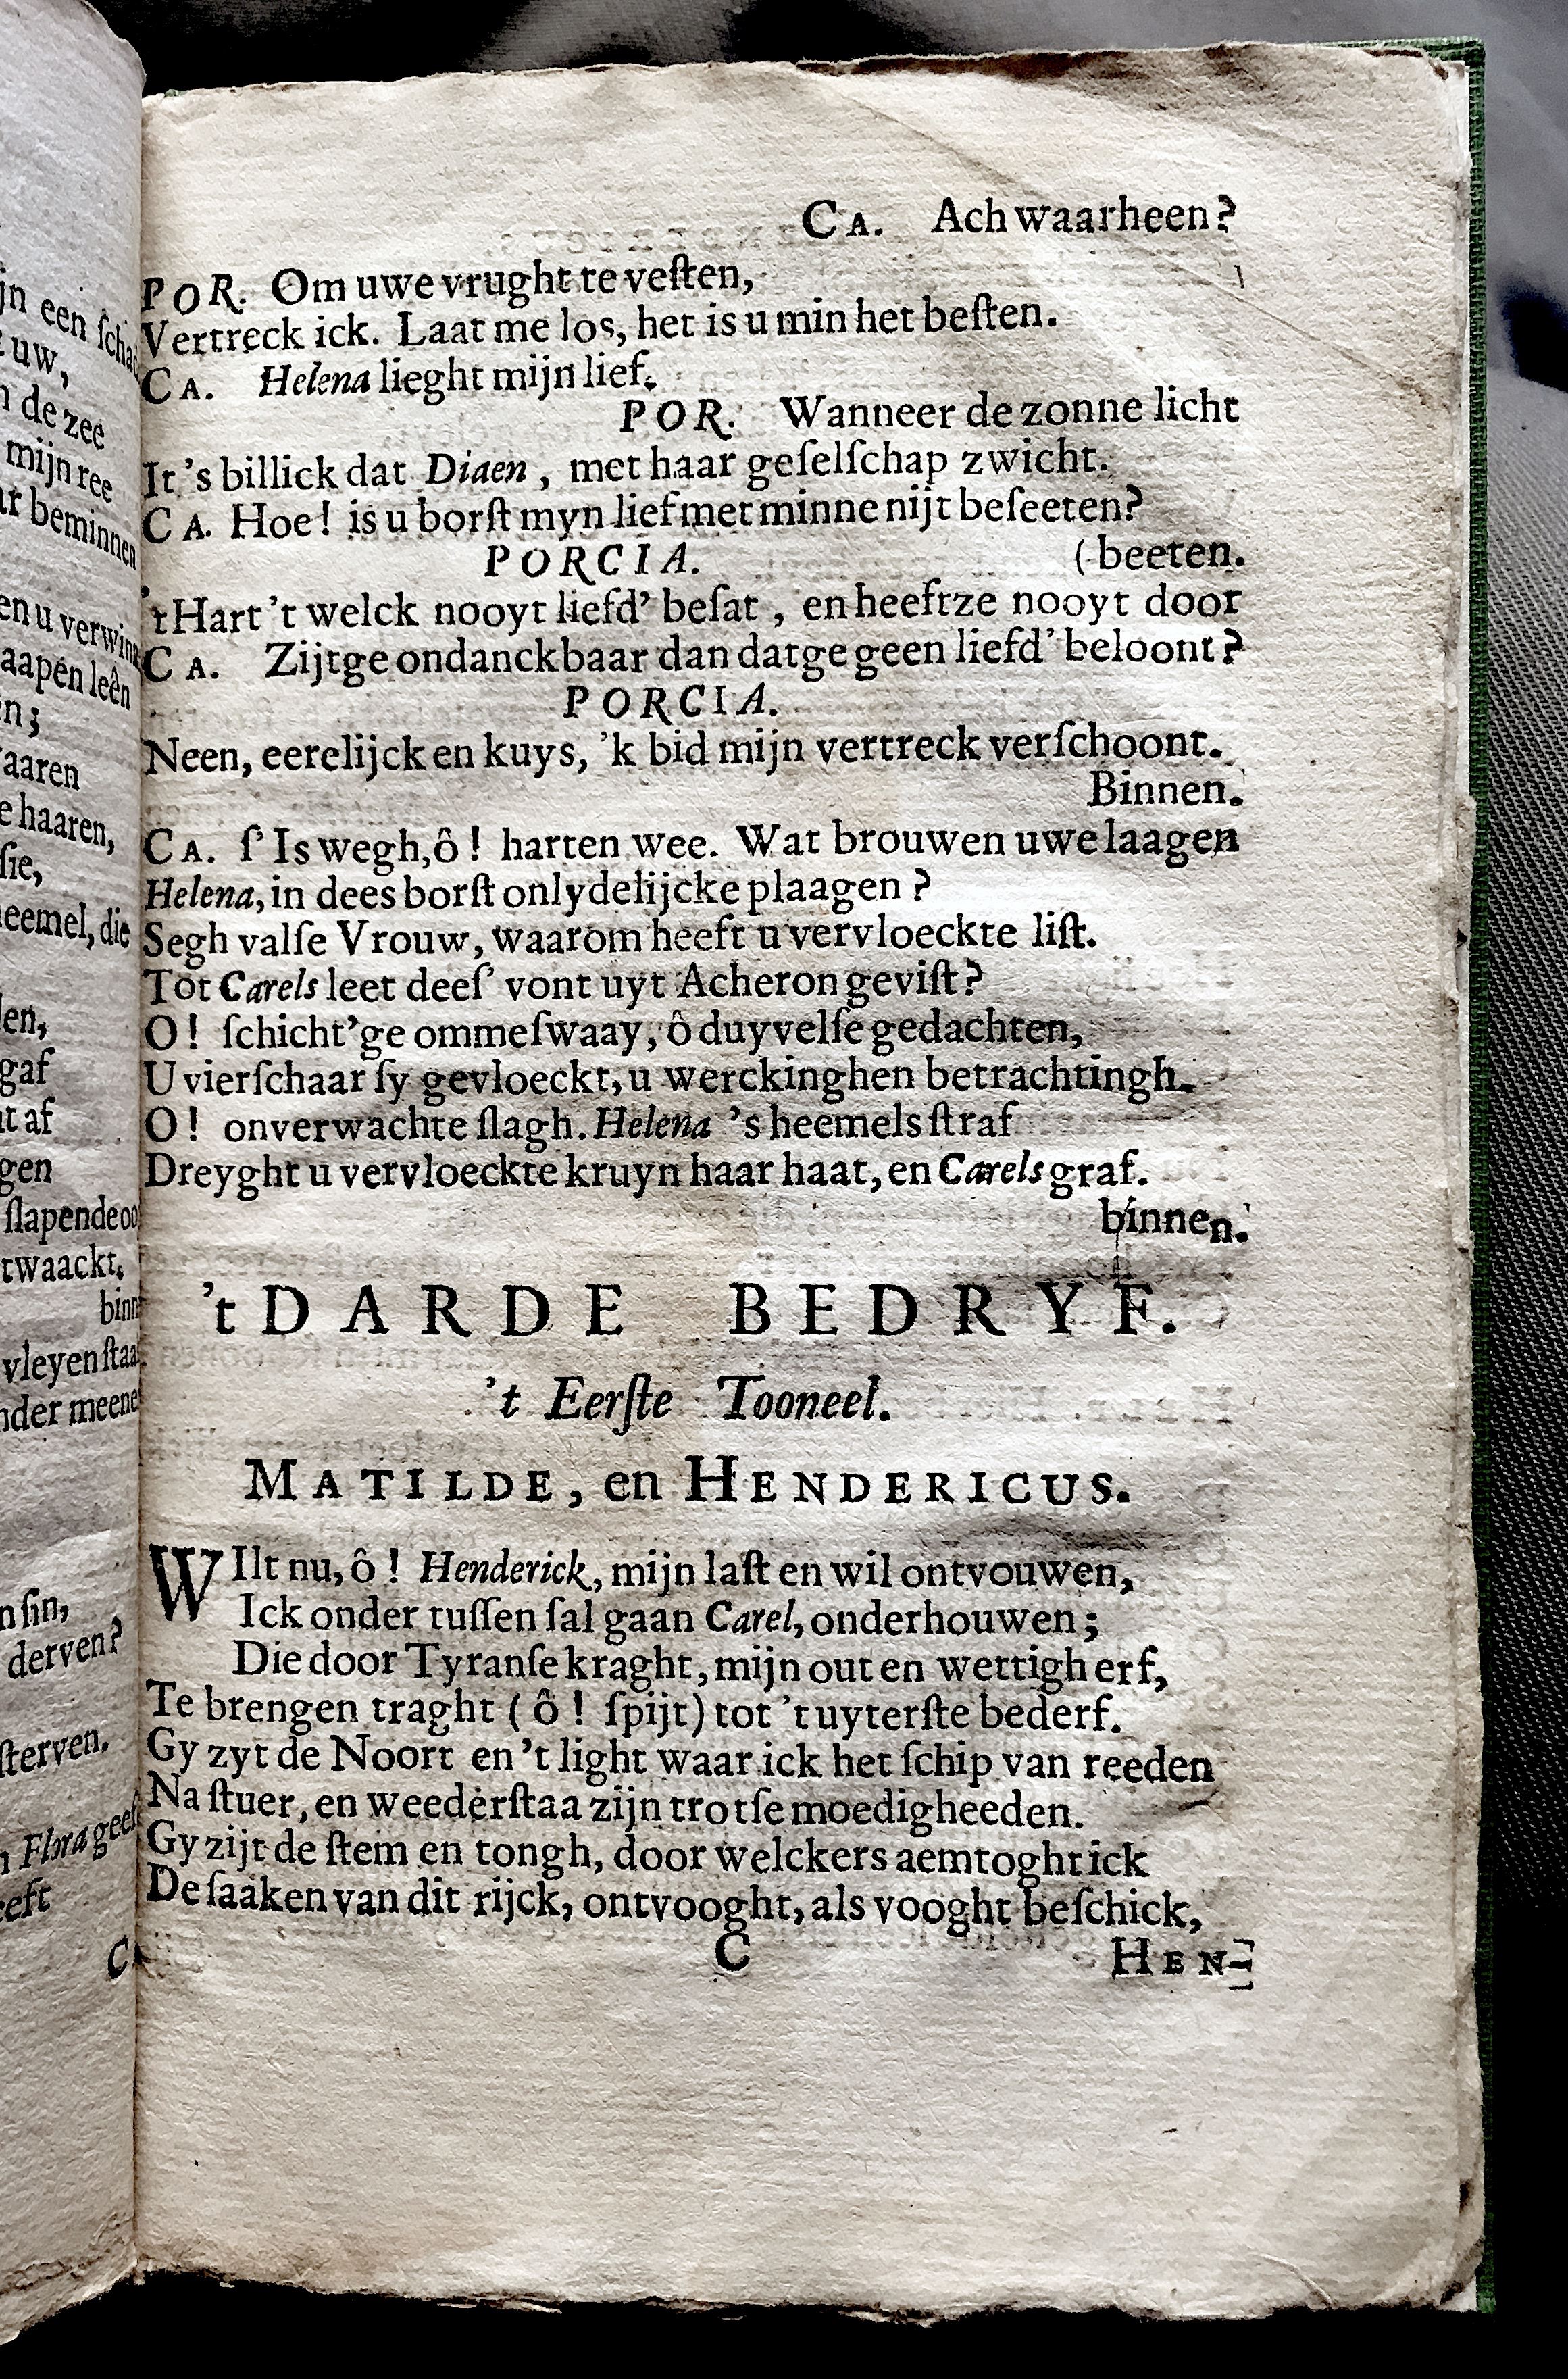 jn een ſcha
uw,
n de zee
mijn ree
ar beminnen
en u verwin
aapen leên
n;
aaren
e haaren,
ſie,
eemel, die
len,
gaf
nt af
gen
ſlapende oo
twaackt.
binn
vleyen ſtaa
nder meene
n ſin,
derven?
ſterven.
n Flora geef
eeft
C
CA. Ach waarheen?
POR. Om uwe vrught te veſten,
Vertreck ick. Laat me los, het is u min het beſten.
CA. Helena lieght mijn lief.
POR. Wanneer de zonne licht
It 's billick dat Diaen, met haar geſelſchap zwicht.
CA. Hoe! is u borſt myn lief met minne nijt beſeeten?
PORCIA. (beeten.
't Hart 't welck nooyt liefd' beſat, en heeftze nooyt door
CA. Zijtge ondanckbaar dan datge geen liefd' beloont?
PORCIA.
Neen, eerelijck en kuys, 'k bid mijn vertreck verſchoont.
Binnen.
CA. ſ' Is wegh, ô! harten wee. Wat brouwen uwe laagen
Helena, in dees borſt onlydelijcke plaagen?
Segh valſe Vrouw, waarom heeft u vervloeckte liſt.
Tot Carels leet deeſ' vont uyt Acheron geviſt?
O! ſchicht'ge ommeſwaay, ô duyvelſe gedachten,
U vierſchaar ſy gevloeckt, u werckinghen betrachtingh.
O! onverwachte ſlagh. Helena 's heemels ſtraf
Dreyght u vervloeckte kruyn haar haat, en Carels graf.
binnen.
't DARDE BEDRYF.
't Eerſte Tooneel.
MATILDE, en HENDERICUS.
WIlt nu, ô! Henderick, mijn laſt en wil ontvouwen,
Ick onder tuſſen ſal gaan Carel, onderhouwen;
Die door Tyranſe kraght, mijn out en wettigh erf,
Te brengen traght (ô! ſpijt) tot 't uyterſte bederf.
Gy zyt de Noort en 't light waar ick het ſchip van reeden
Na ſtuer, en weederſtaa zijn trotſe moedigheeden.
Gy zijt de ſtem en tongh, door welckers aemtoght ick
De ſaaken van dit rijck, ontvooght, als vooght beſchick,
C HEN-